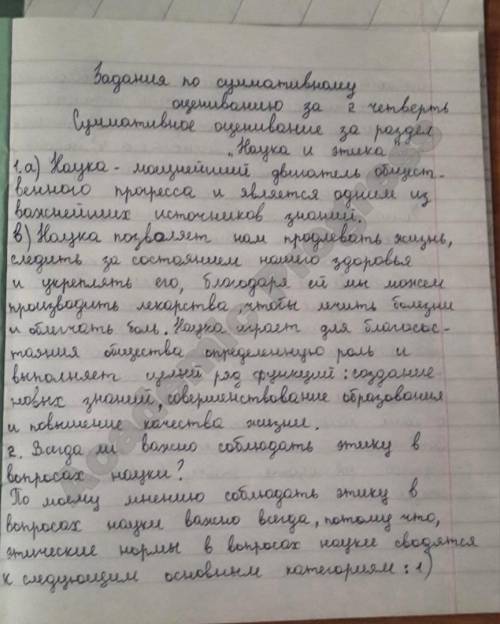 Задания по суммативному
оцениванию за 2 четверть
Суммативное оценивание за раздел
„Наука и этика
1.а) Наука - мощнейший двигатель общест-
венного прогресса и является одним из
важнейших источников знаний.
в) Наука позволяет нам продлевать жизнь,
следить за состоянием нашего здоровья
и укреплять его, благодаря ей мы можем
производить лекарства, чтобы лечить болезни
и облегчать боль. Наука играет для благосос-
тояния общества определенную роль и
выполняет целый ряд функций: создание
новых знаний, совершенствование образования
и повышение качества жизни.
2. Всегда ли важно соблюдать этику в
вопросах науки?
По моему мнению соблюдать этику в
вопросах науки важно всегда, потому что,
этические нормы в вопросах науки сводятся
к следующим основным категориям: 1)